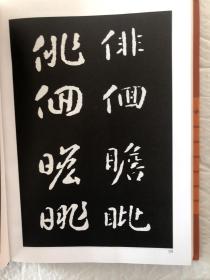 俳佪瞻眺
俳佪瞻眺